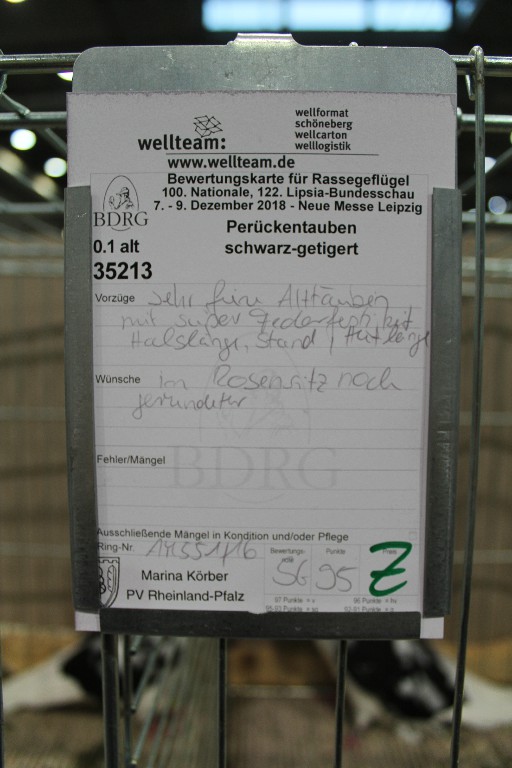 wellteam:
wellformat
schöneberg
wellcarton
welllogistik
www.wellteam.de
Bewertungskarte für Rassegeflügel
100. Nationale, 122. Lipsia-Bundesschau
7. - 9. Dezember 2018 - Neue Messe Leipzig
BDRG
0.1 alt
35213
Perückentauben
schwarz-getigert
Vorzüge sehr feine Alttäubin
mit super Federfestigkeit
Halslänge, Stand,
Wünsche im Rosensitz noch
gerundeter
BDRG
Fehler/Mängel
Ausschließende Mängel in Kondition und/oder Pflege
Ring-Nr.
Bewertungs-
note
SG
Punkte
95
Preis
Z
Marina Körber
PV Rheinland-Pfalz
97 Punkte = v
96 Punkte = hv